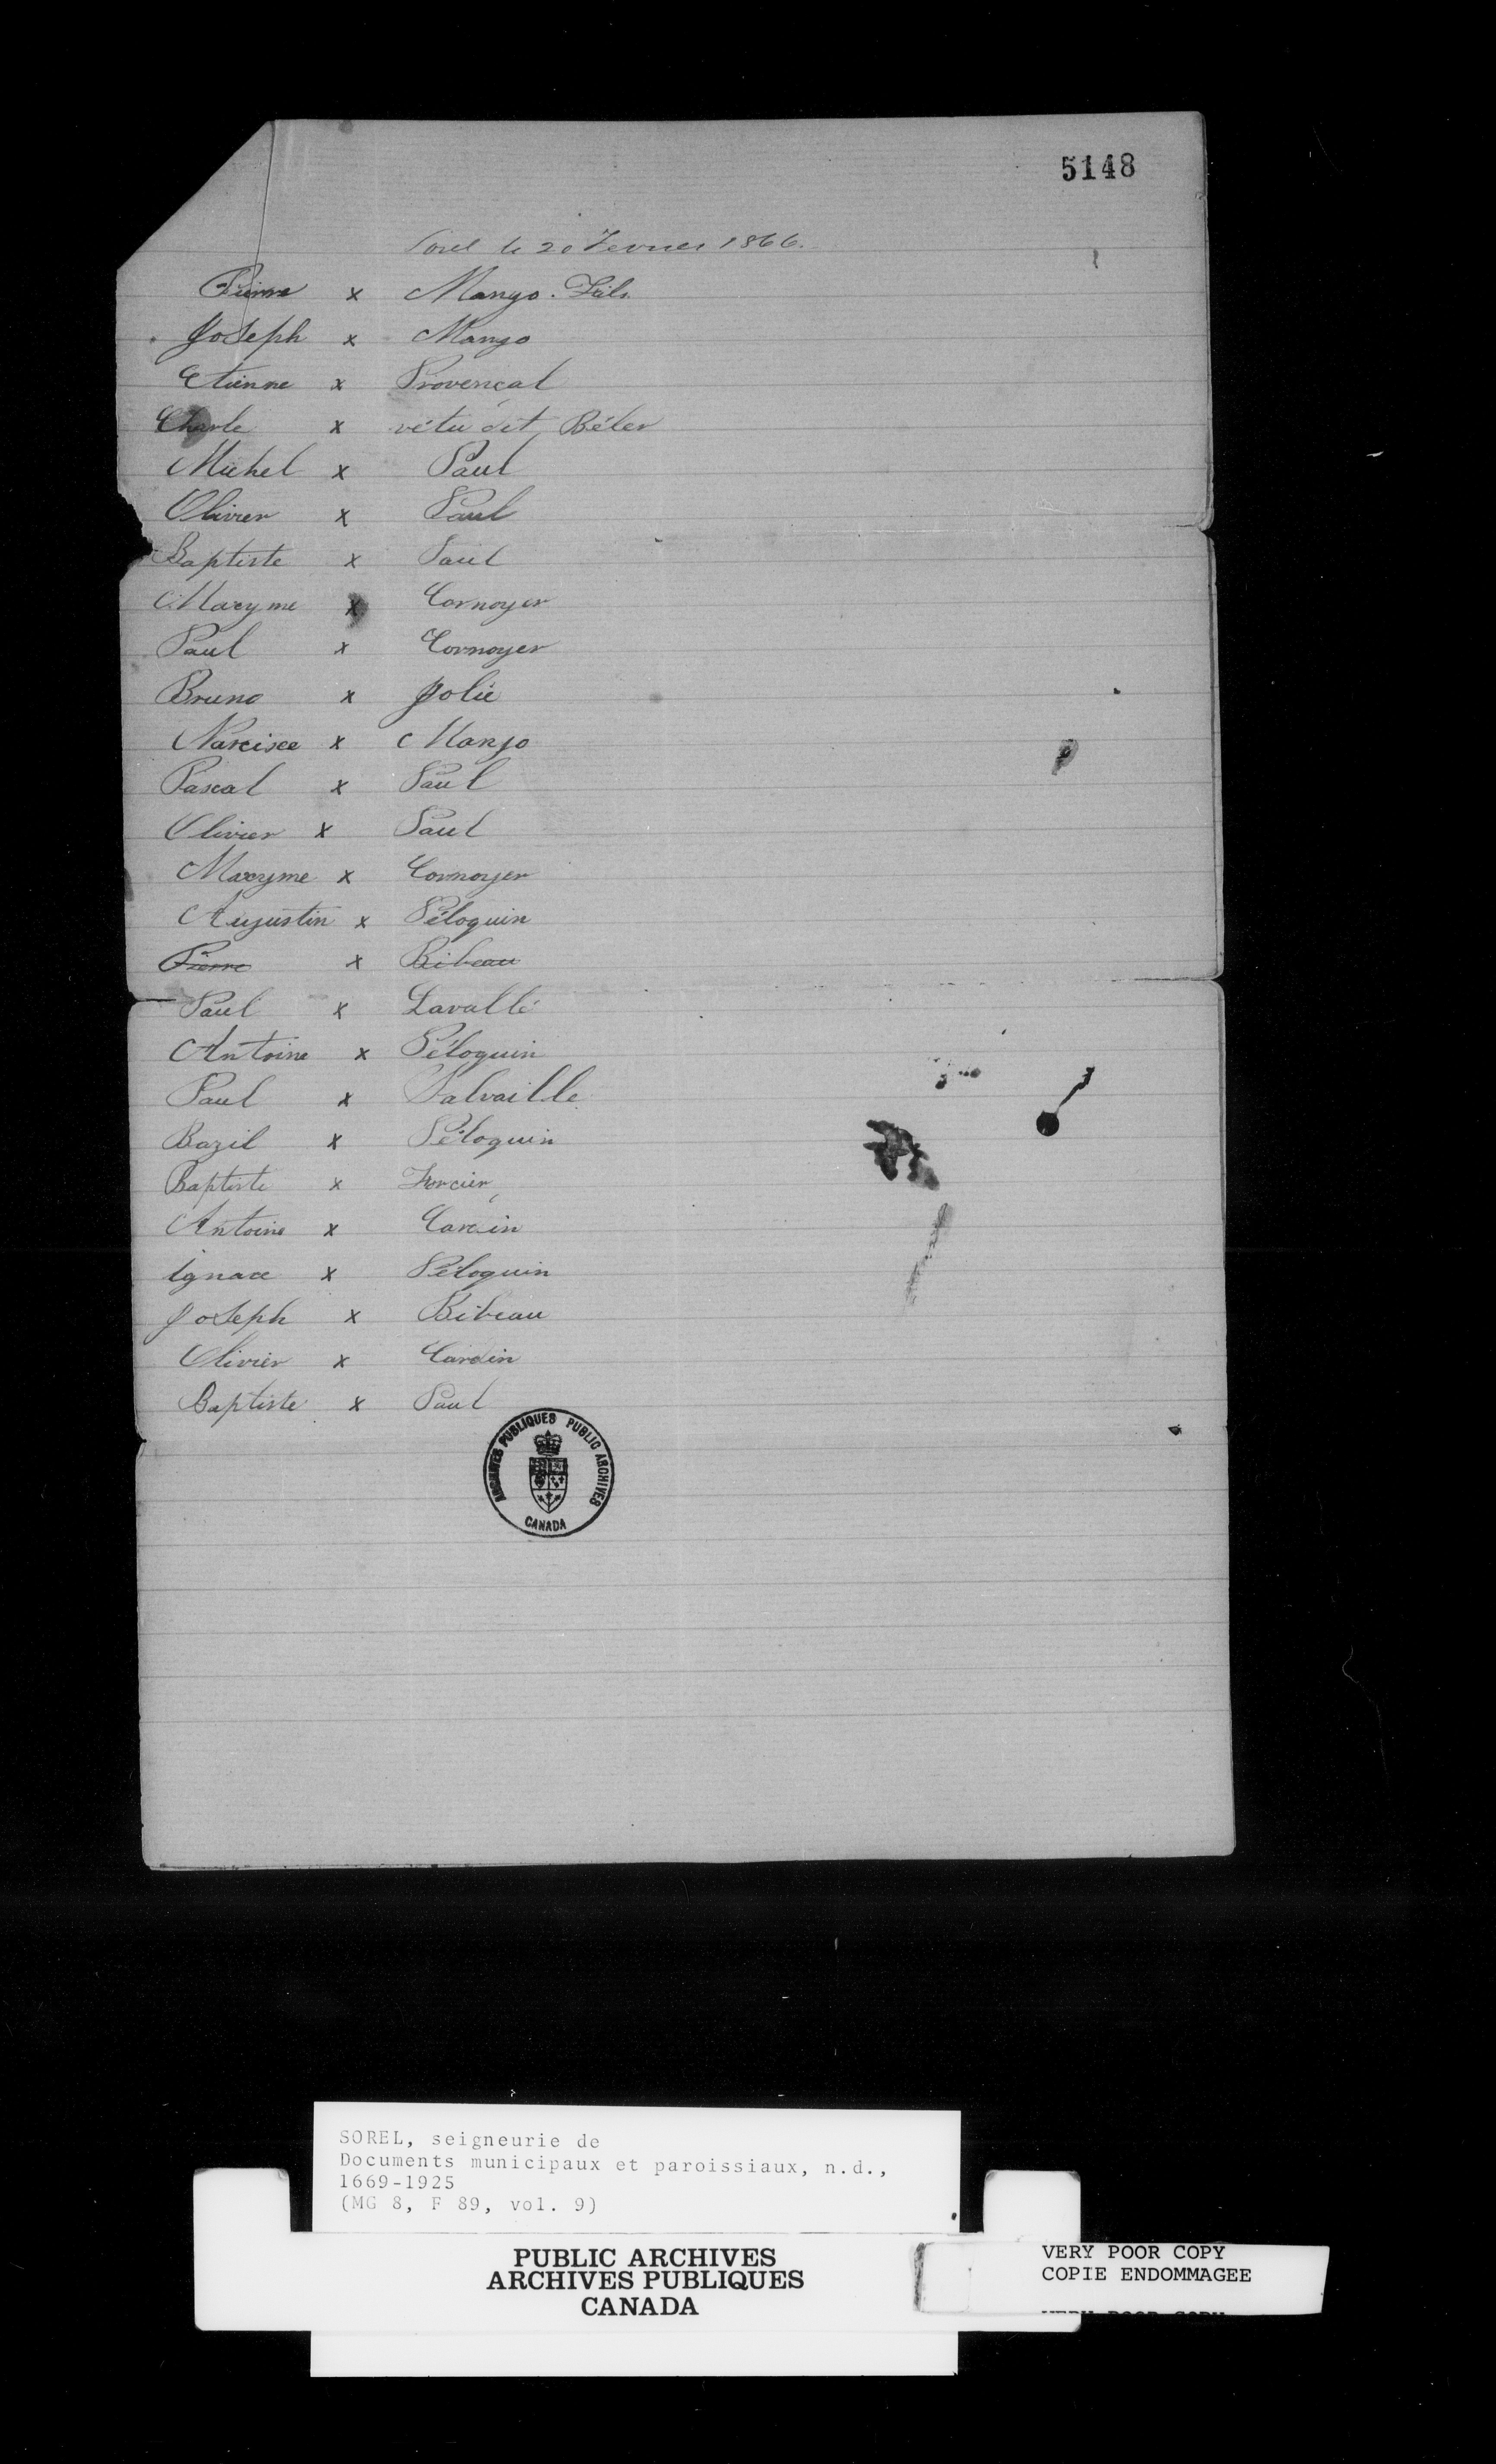 5148
Sorel le 20 Fevrier 1866.
Pierre x Mango. Fils.
Joseph x Mango
Etienne x Provençal
Charle x vétu dit Béler
Michel x Paul
Olivier x Paul
Baptiste x Paul
Maxyme x Cornoyer
Paul x Cornoyer
Bruno x Jolie
Narcisce x Mango
Pascal x Paul
Olivier x Paul
Maxyme x Cornoyer
Augustin x Péloquin
Pierre x Bibeau
Paul x Lavallé
Antoine x Péloquin
Paul x Salvaille
Bazil x Péloquin
Baptiste x Forcier
Antoine x Cardin
ignace x Péloquin
Joseph x Bibeau
Olivier x Cardin
Baptiste x Paul
ARCHIVES PUBLIQUES PUBLIC ARCHIVES
CANADA
SOREL, seigneurie de
Documents municipaux et paroissiaux, n.d.,
1669-1925
(MG 8, F 89, vol. 9)
PUBLIC ARCHIVES
ARCHIVES PUBLIQUES
CANADA
VERY POOR COPY
COPIE ENDOMMAGEE
VERY POOR COPY